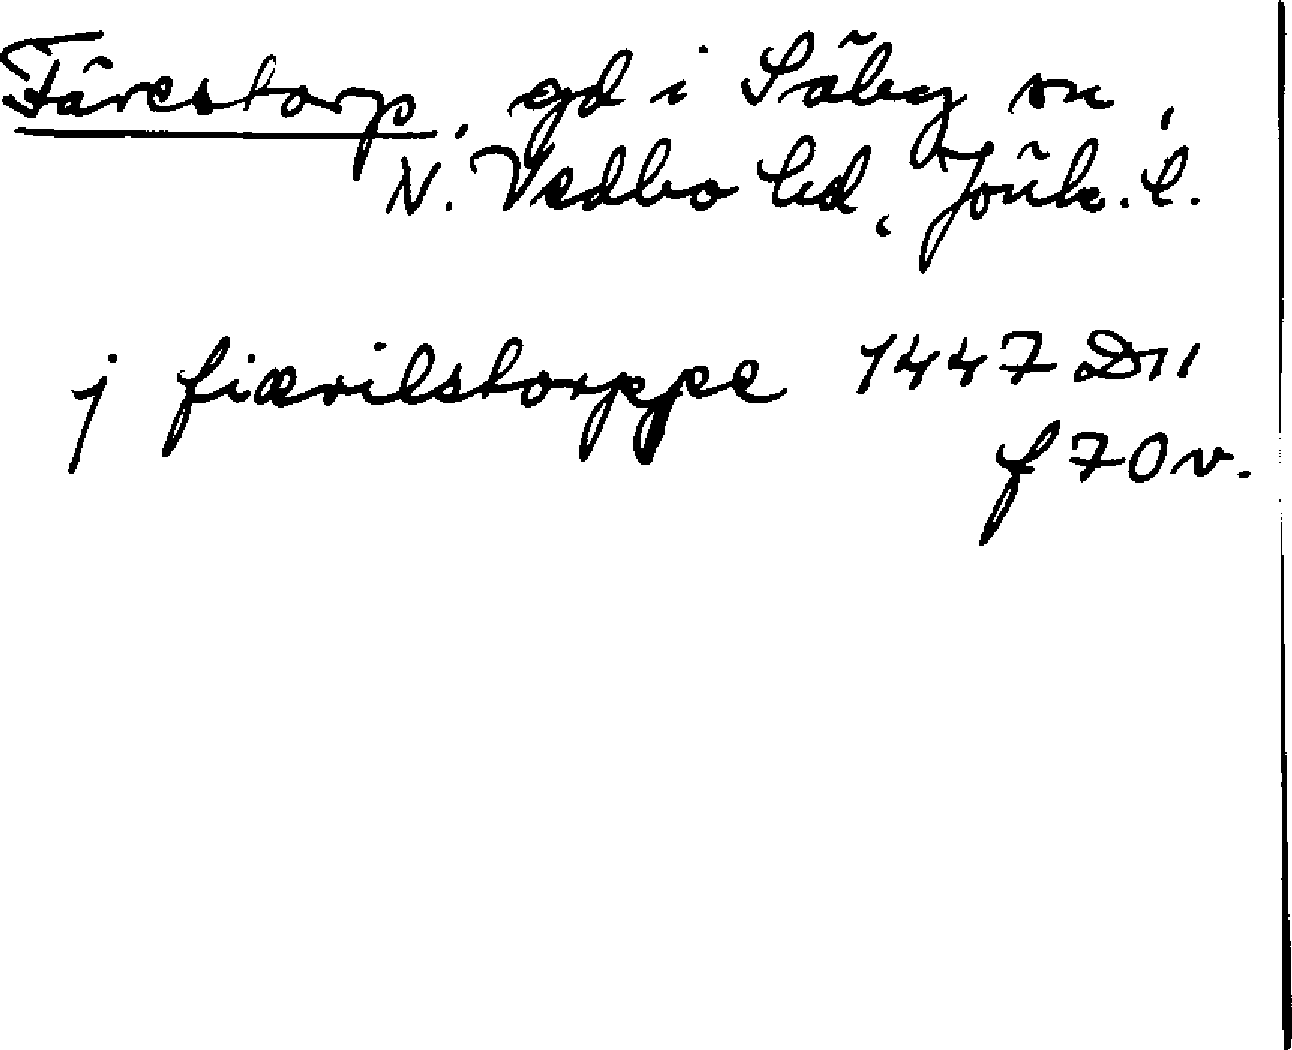 Färestorp, gd i Säby sn,
N. Vedbo hd, Jönk. l.
j fiærilstorppe 1447 D11
f 70 v.